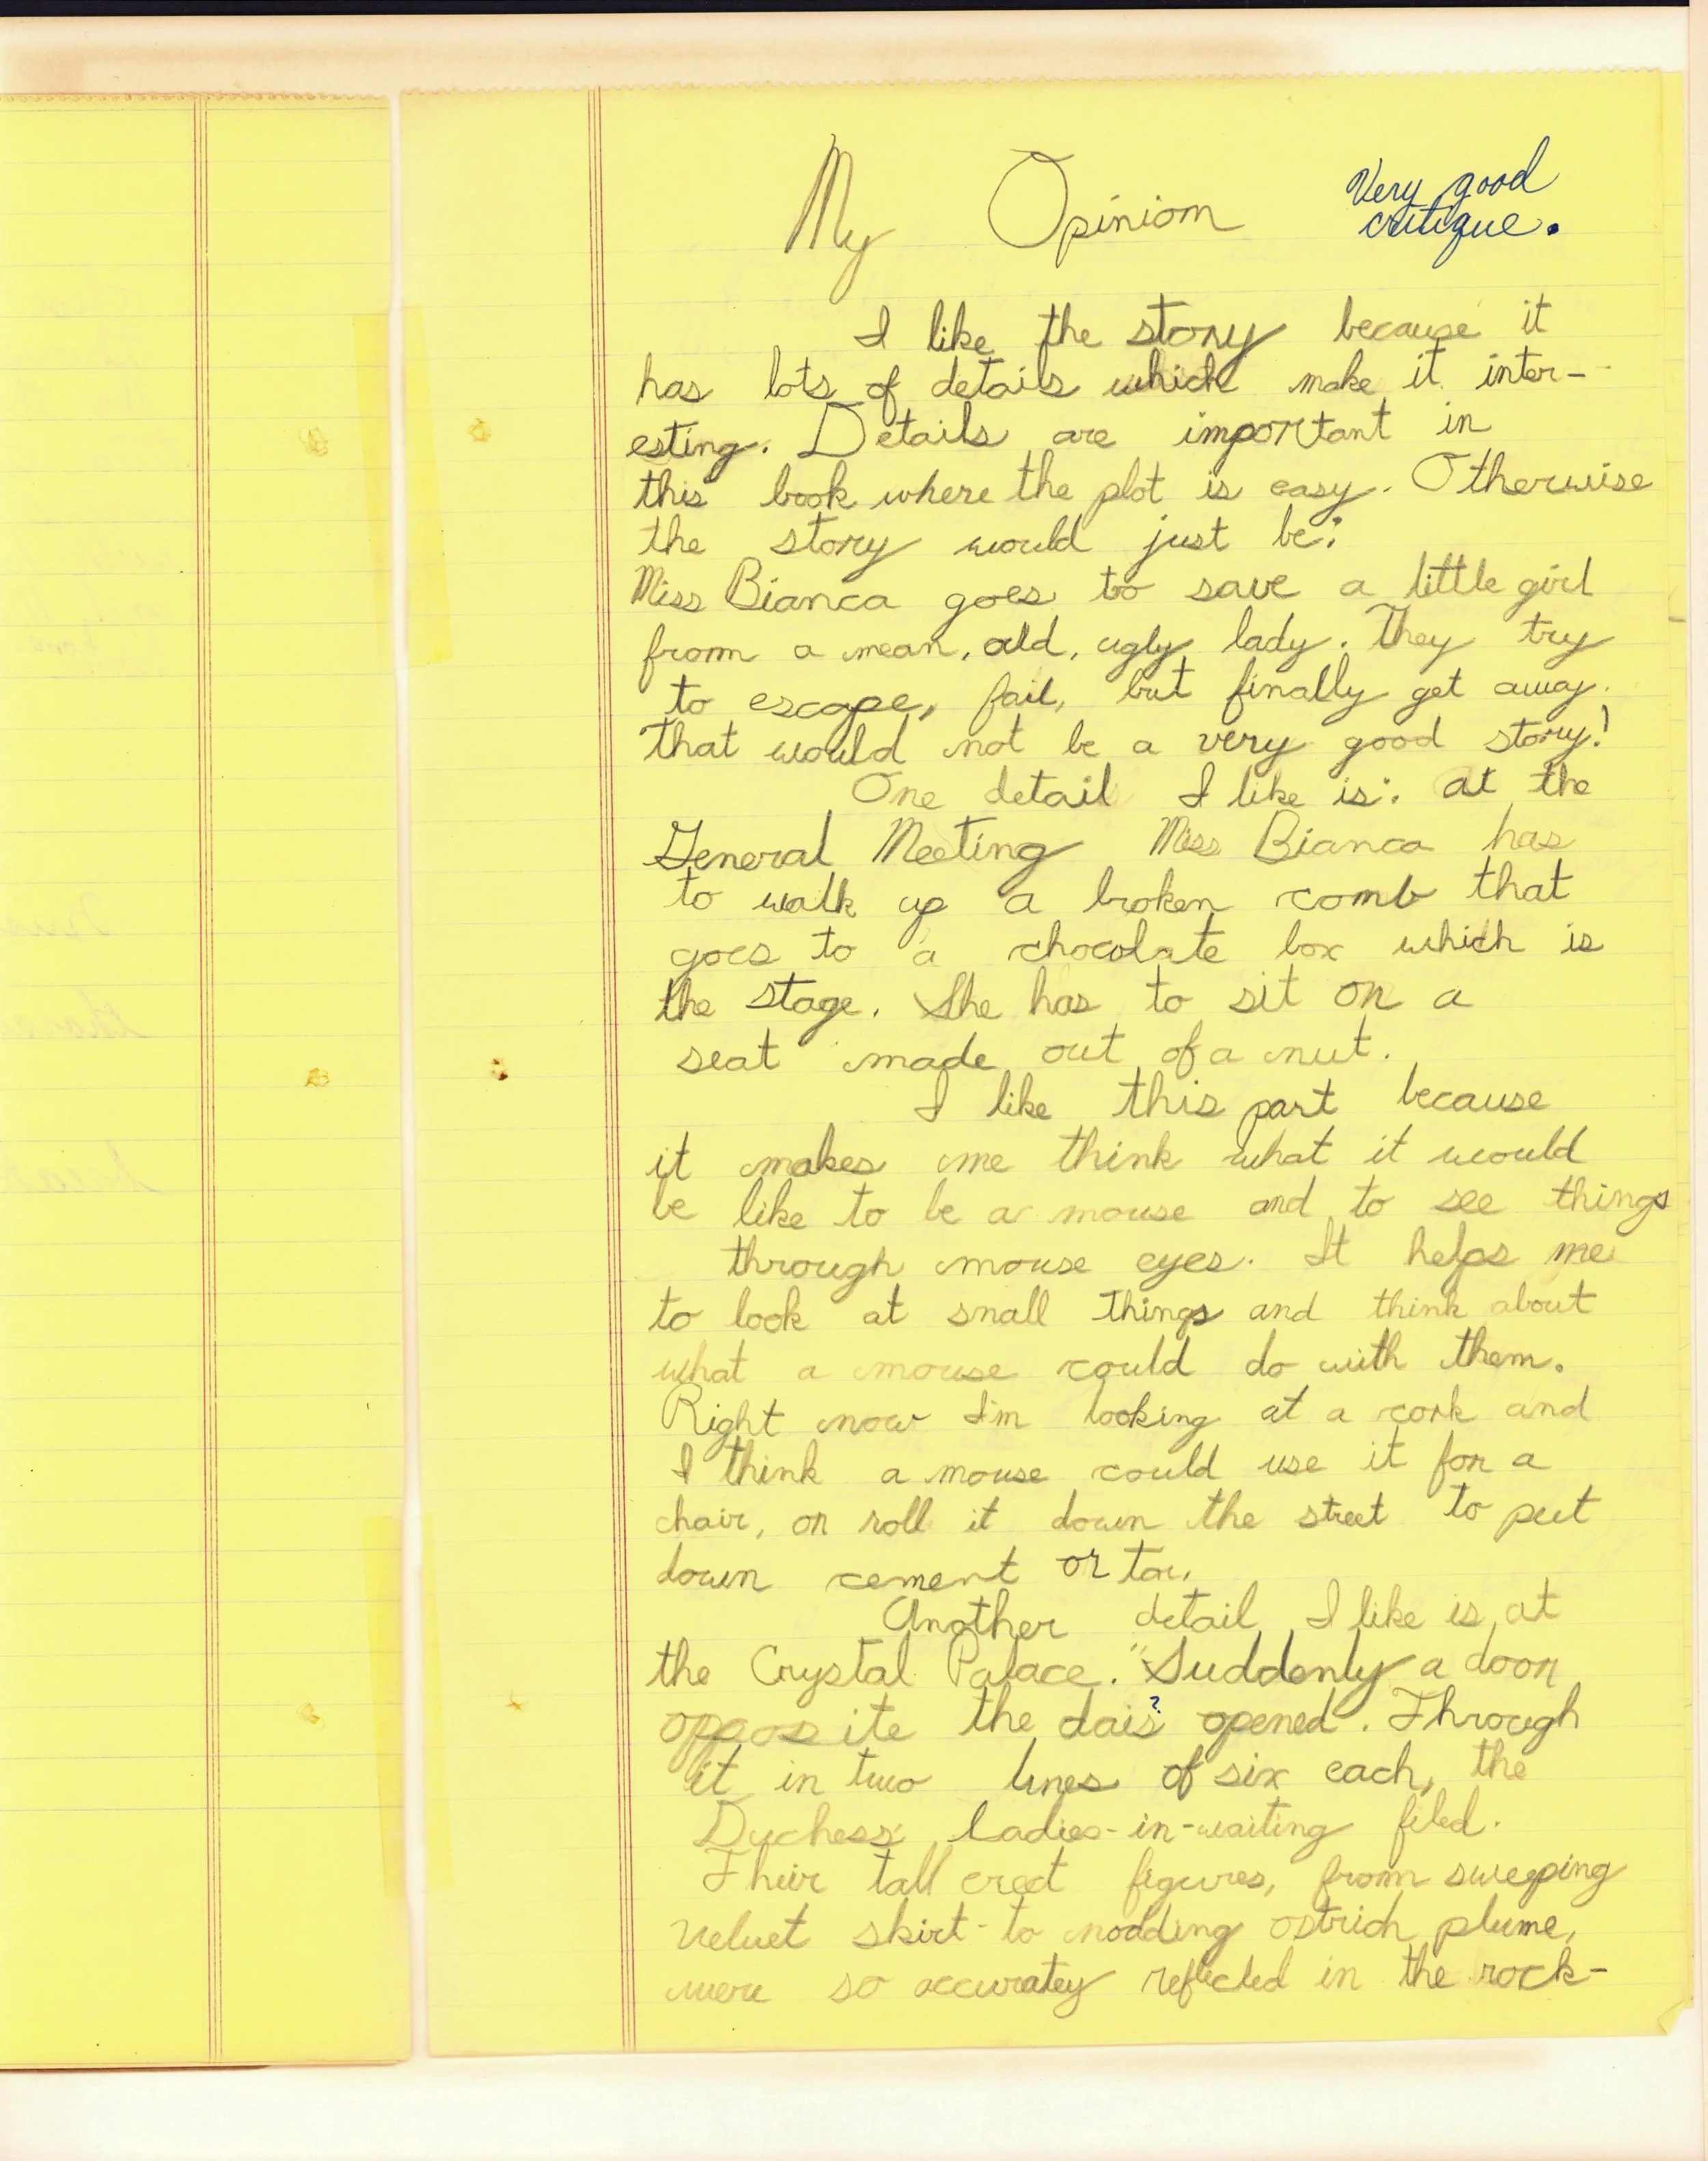 My Opinion
Very good
critique.
I like the story because it
has lots of details which make it inter-
esting. Details are important in
this book where the plot is easy. Otherwise
the story would just be:
Miss Bianca goes to save a little girl
from a mean, old, ugly lady. They try
to escape, fail, but finally get away.
That would not be a very good story!
One detail I like is: at the
General Meeting Miss Bianca has
to walk up a broken comb that
goes to a chocolate box which is
the stage. She has to sit on a
seat made out of a nut.
I like this part because
it makes me think what it would
be like to be a mouse and to see things
through mouse eyes. It helps me
to look at small things and think about
what a mouse could do with them.
Right now I'm looking at a cork and
I think a mouse could use it for a
chair, or roll it down the street to put
down cement or tar.
Another detail I like is, at
the Crystal Palace. "Suddenly a door
opposite the dais? opened. Through
it in two lines of six each, the
Duchess' Ladies-in-waiting filed.
Their tall erect figures, from sweeping
velvet skirt to nodding ostrich plume,
were so accuratey reflected in the rock-